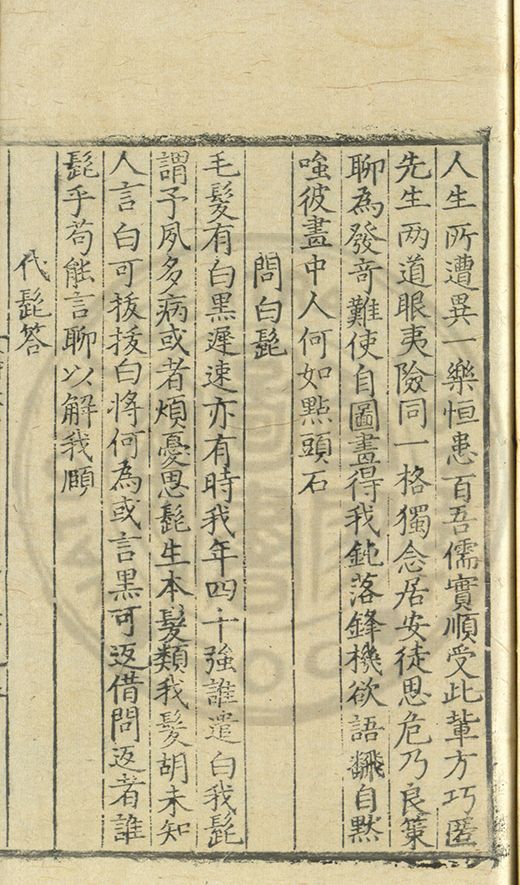 人生所遭異一樂恒患百吾儒實順受此輩方巧匿
先生两道眼夷險同一格獨念居安徒思危乃良策
聊為發竒難使自圖畫得我鈍落鋒機欲語飜自黙
嗤彼畫中人何如點頭石
問白髭
毛髮有白黑遲速亦有時我年四十強誰遣白我髭
謂予夙多病或者煩憂思髭生本髮類我髮胡未知
人言白可拔拔白將何為或言黑可返借問返者誰
髭乎苟能言聊以解我頥
代髭答